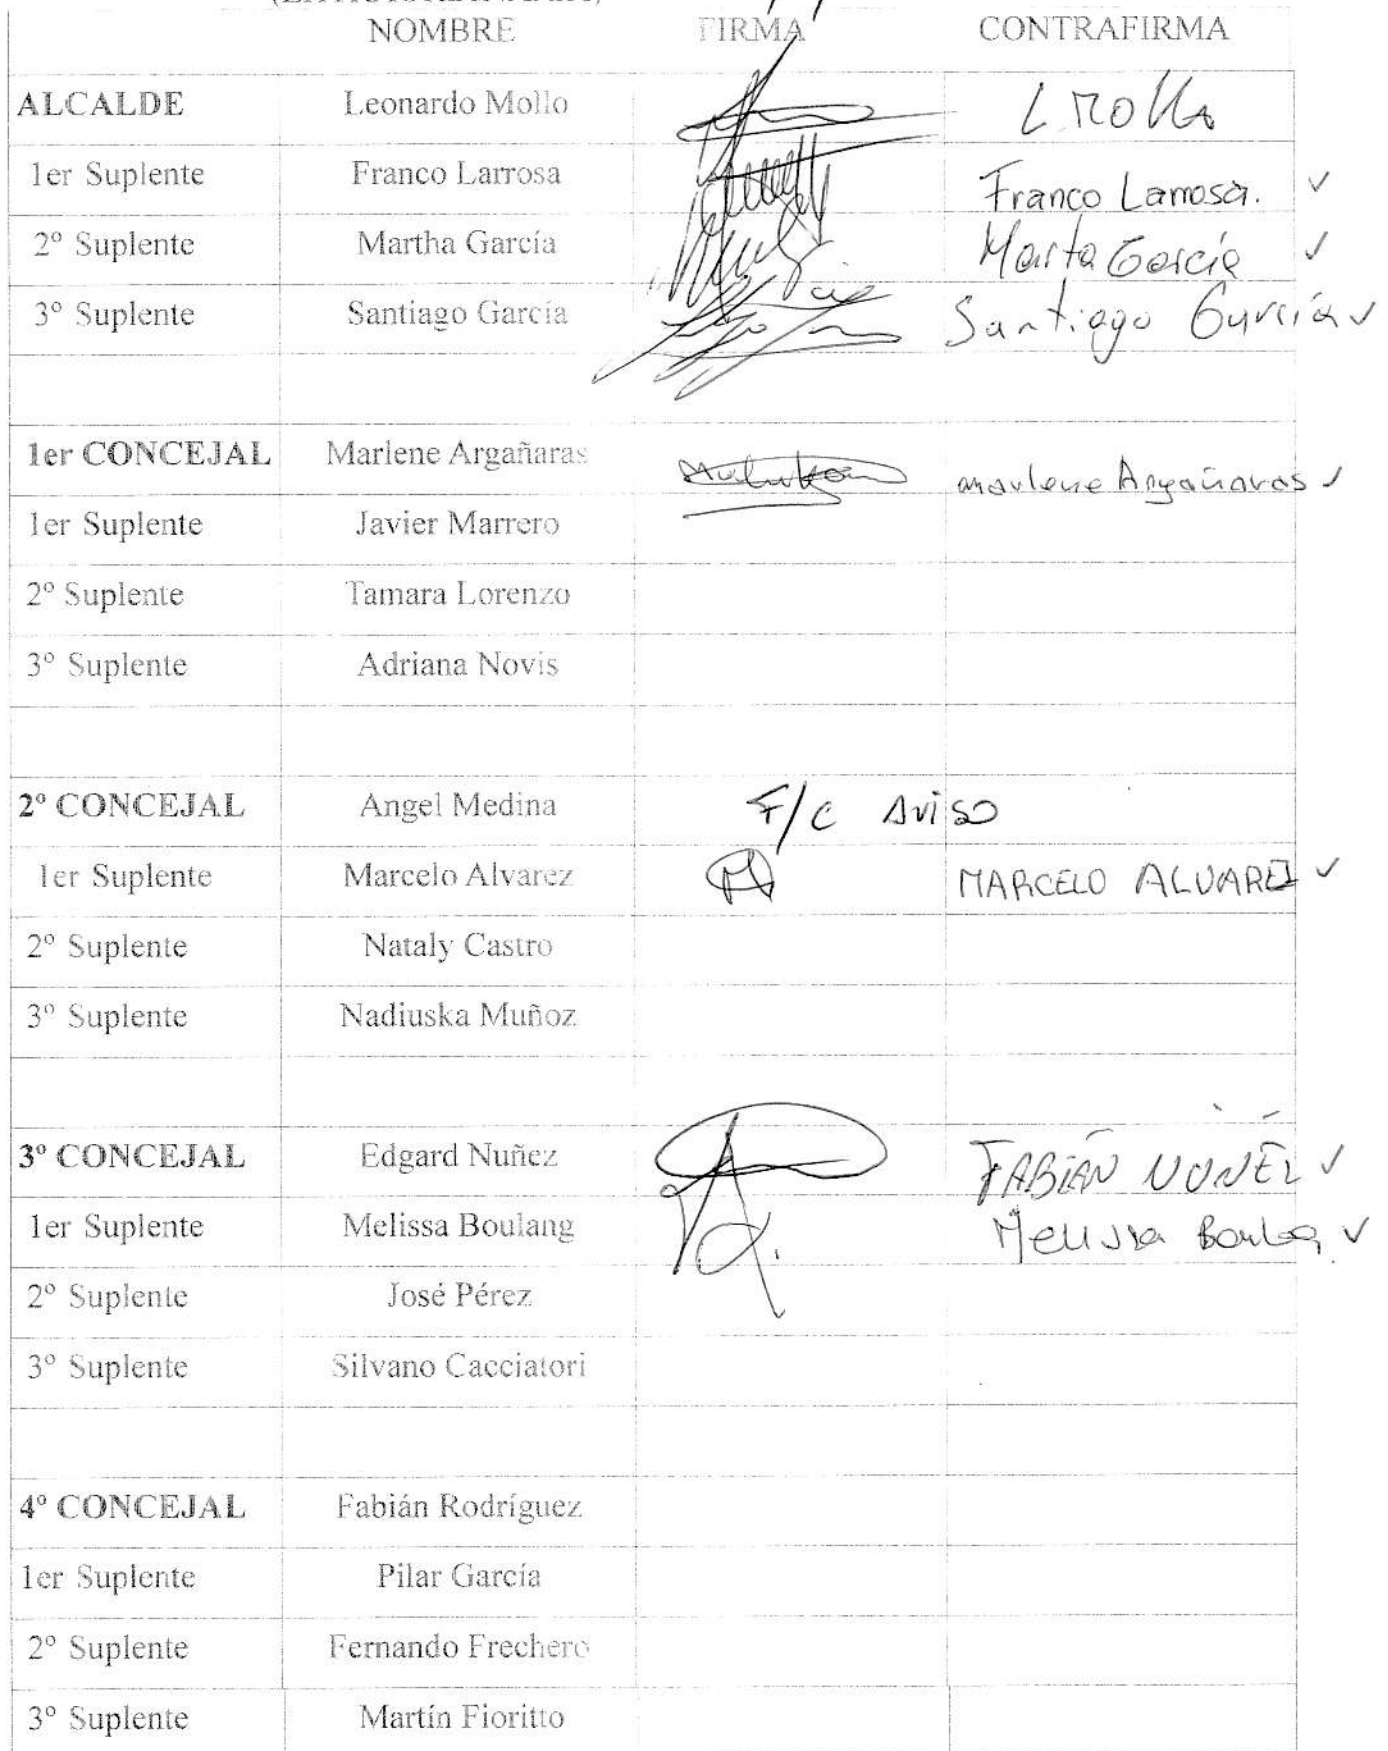 NOMBRE FIRMA CONTRAFIRMA
ALCALDE Leonardo Mollo L Mollo
1er Suplente Franco Larrosa Franco Larrosa. ✓
2º Suplente Martha García Marta García ✓
3º Suplente Santiago García Santiago García ✓
1er CONCEJAL Marlene Argañaras marlene Argañaras ✓
1er Suplente Javier Marrero
2º Suplente Tamara Lorenzo
3º Suplente Adriana Novis
2º CONCEJAL Angel Medina F/C Aviso
1er Suplente Marcelo Alvarez MARCELO ALVAREZ ✓
2º Suplente Nataly Castro
3º Suplente Nadiuska Muñoz
3º CONCEJAL Edgard Nuñez FABIÁN NUÑEZ ✓
1er Suplente Melissa Boulang Melissa ✓
2º Suplente José Pérez
3º Suplente Silvano Cacciatori
4º CONCEJAL Fabián Rodríguez
1er Suplente Pilar García
2º Suplente Fernando Frechero
3º Suplente Martín Fioritto